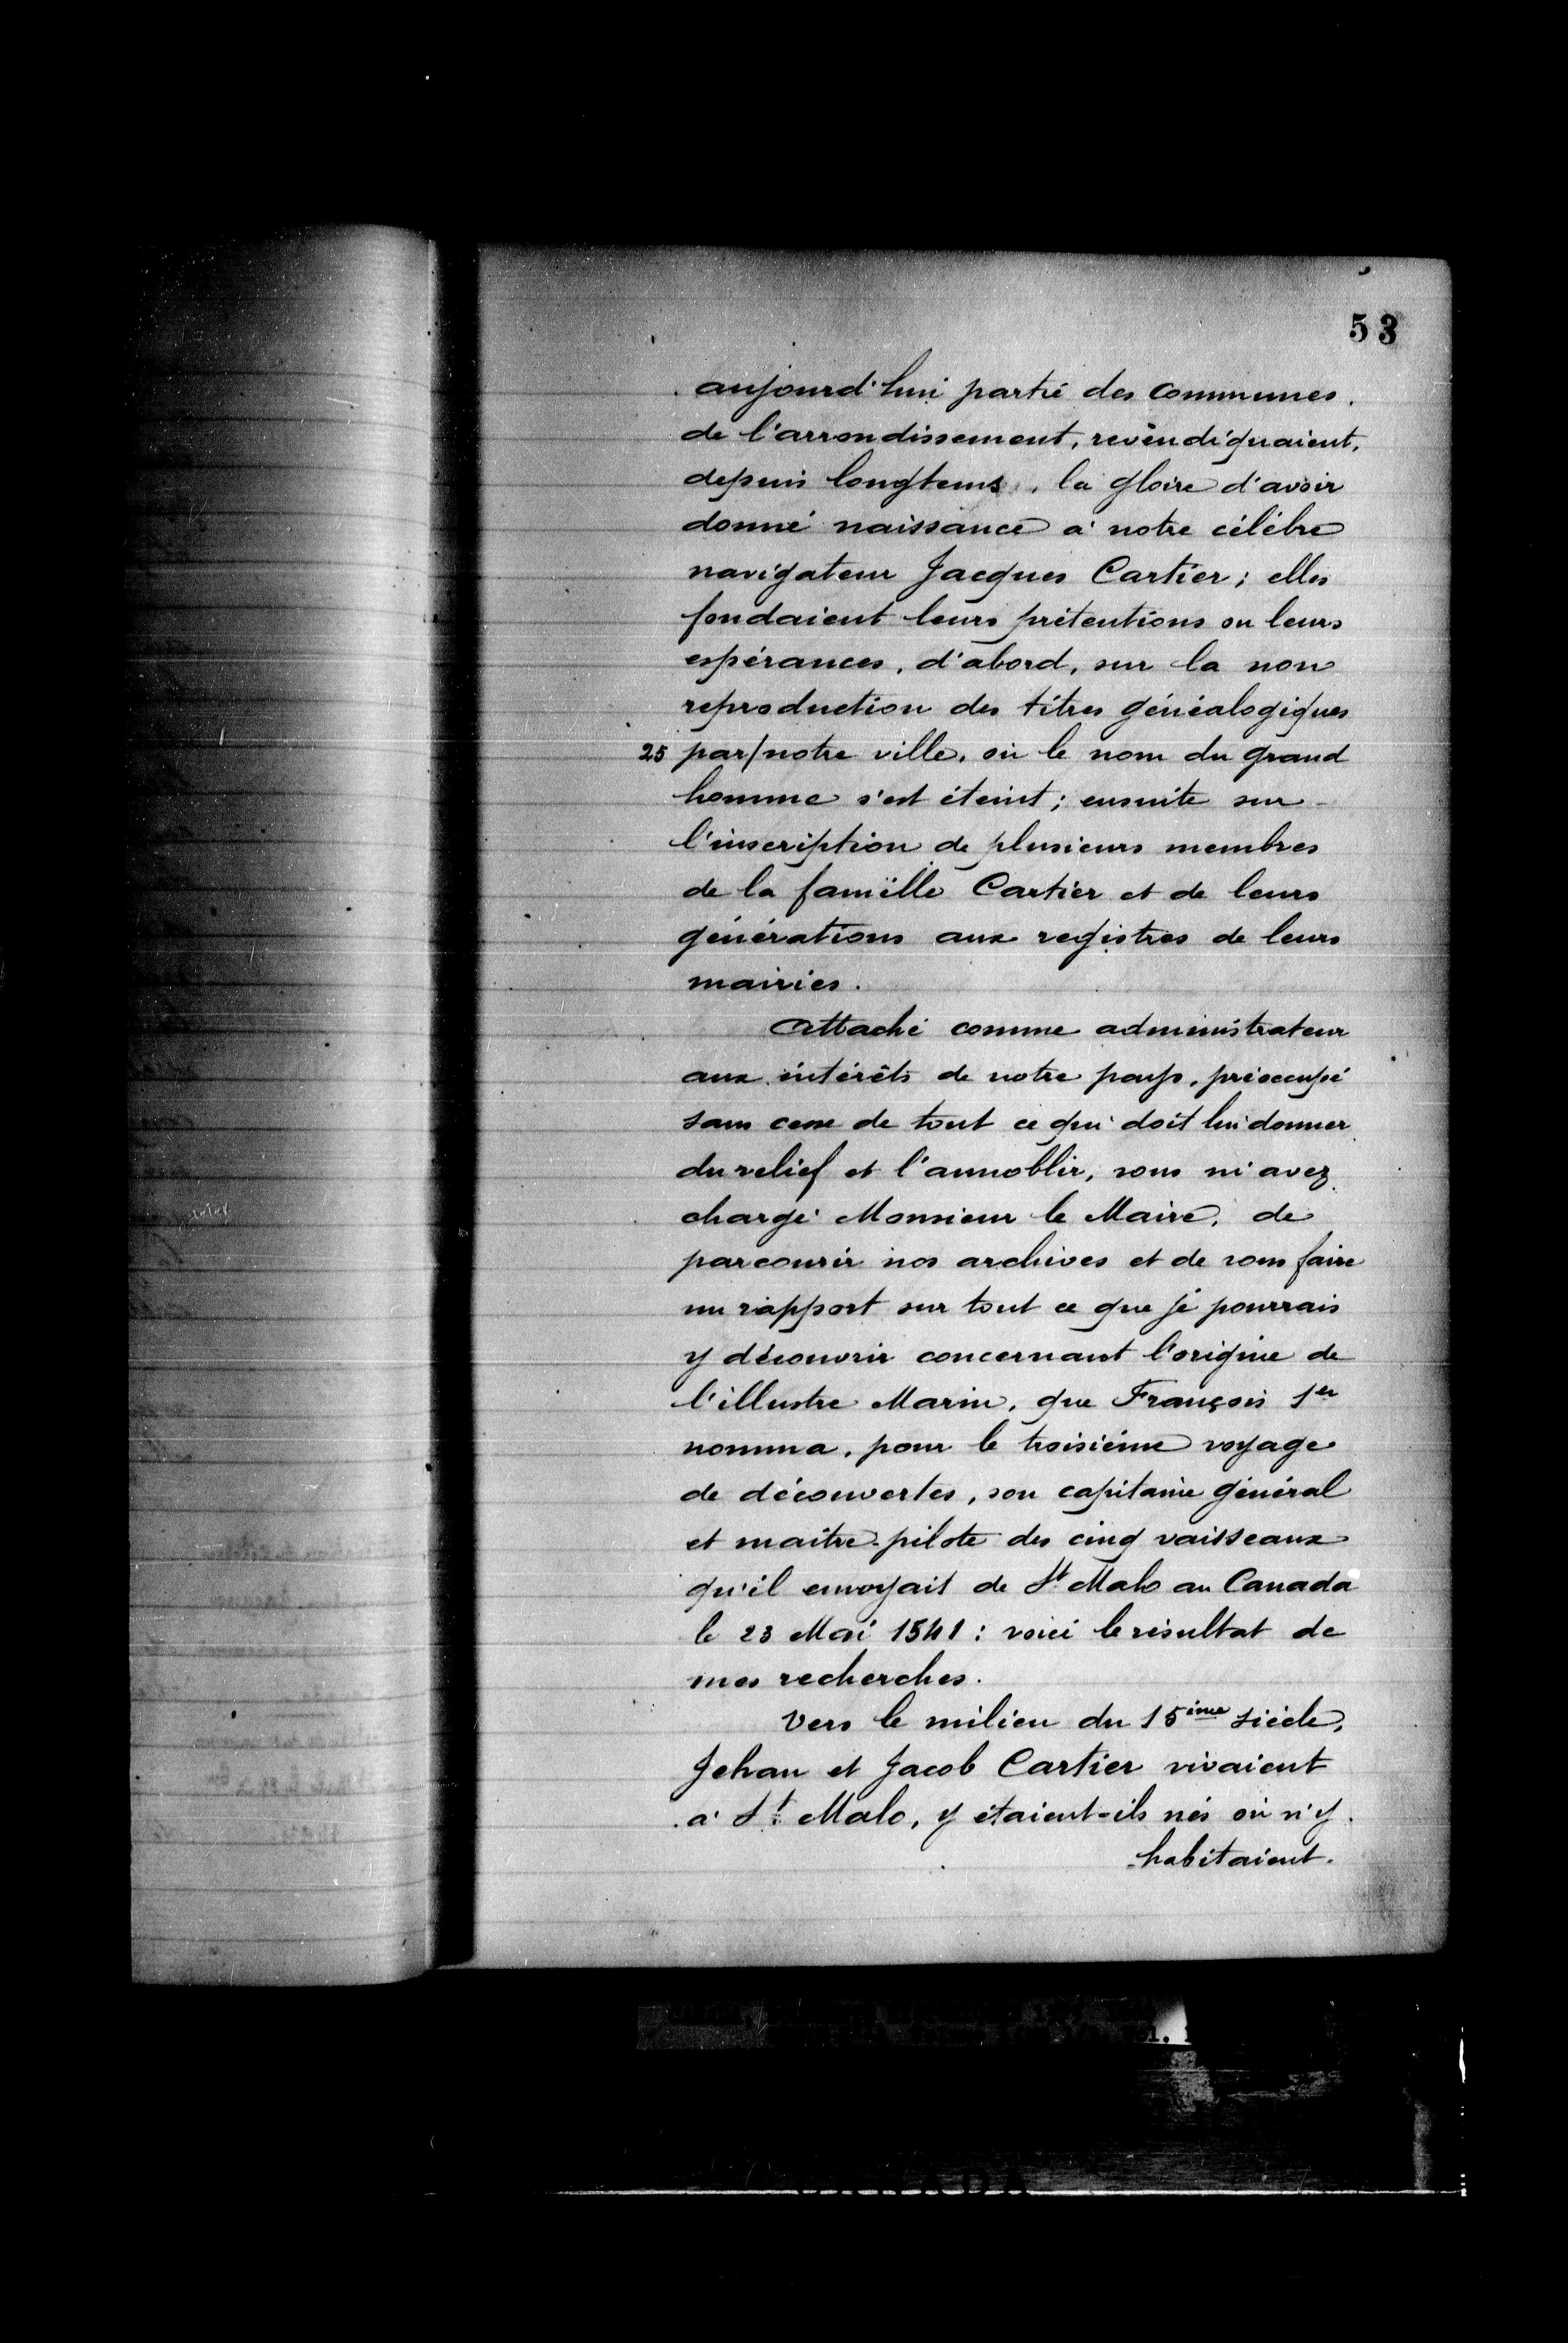 53
aujourd'hui partie des communes.
de l'arrondissement, revendiquaient,
depuis longtems, la gloire d'avoir
donné naissance à notre célèbre
navigateur Jacques Cartier; elles
fondaient leurs prétentions ou leurs
espérances, d'abord, sur la non
reproduction des titres généalogiques
25 par/notre ville, où le nom du grand
homme s'est éteint; ensuite sur
l'inscription de plusieurs membres
de la famille Cartier et de leurs
générations aux registres de leurs
mairies.
Attaché comme administrateur
aux intérêts de notre pays, préoccupé
sans cesse de tout ce qui doit lui donner
du relief et l'annoblir, vous m'avez
chargé Monsieur le Maire, de
parcourir nos archives et de vous faire
un rapport sur tout ce que je pourrais
y découvrir concernant l'origine de
l'illustre Marin, que François 1er
nomma, pour le troisième voyage
de découvertes, son capitaine général
et maître-pilote des cinq vaisseaux
qu'il envoyait de St. Malo au Canada
le 23 Mai 1541: voici le résultat de
mes recherches.
Vers le milieu du 15ème siècle,
Jehan et Jacob Cartier vivaient
à St. Malo, y étaient-ils nés où n'y
habitaient.